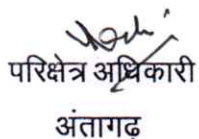 परिक्षेत्र अधिकारी
अंतागढ़